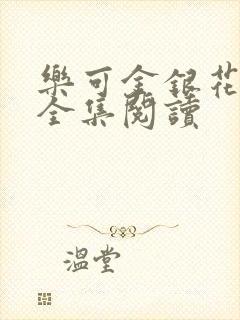 樂可金銀花
全集閱讀
溫堂